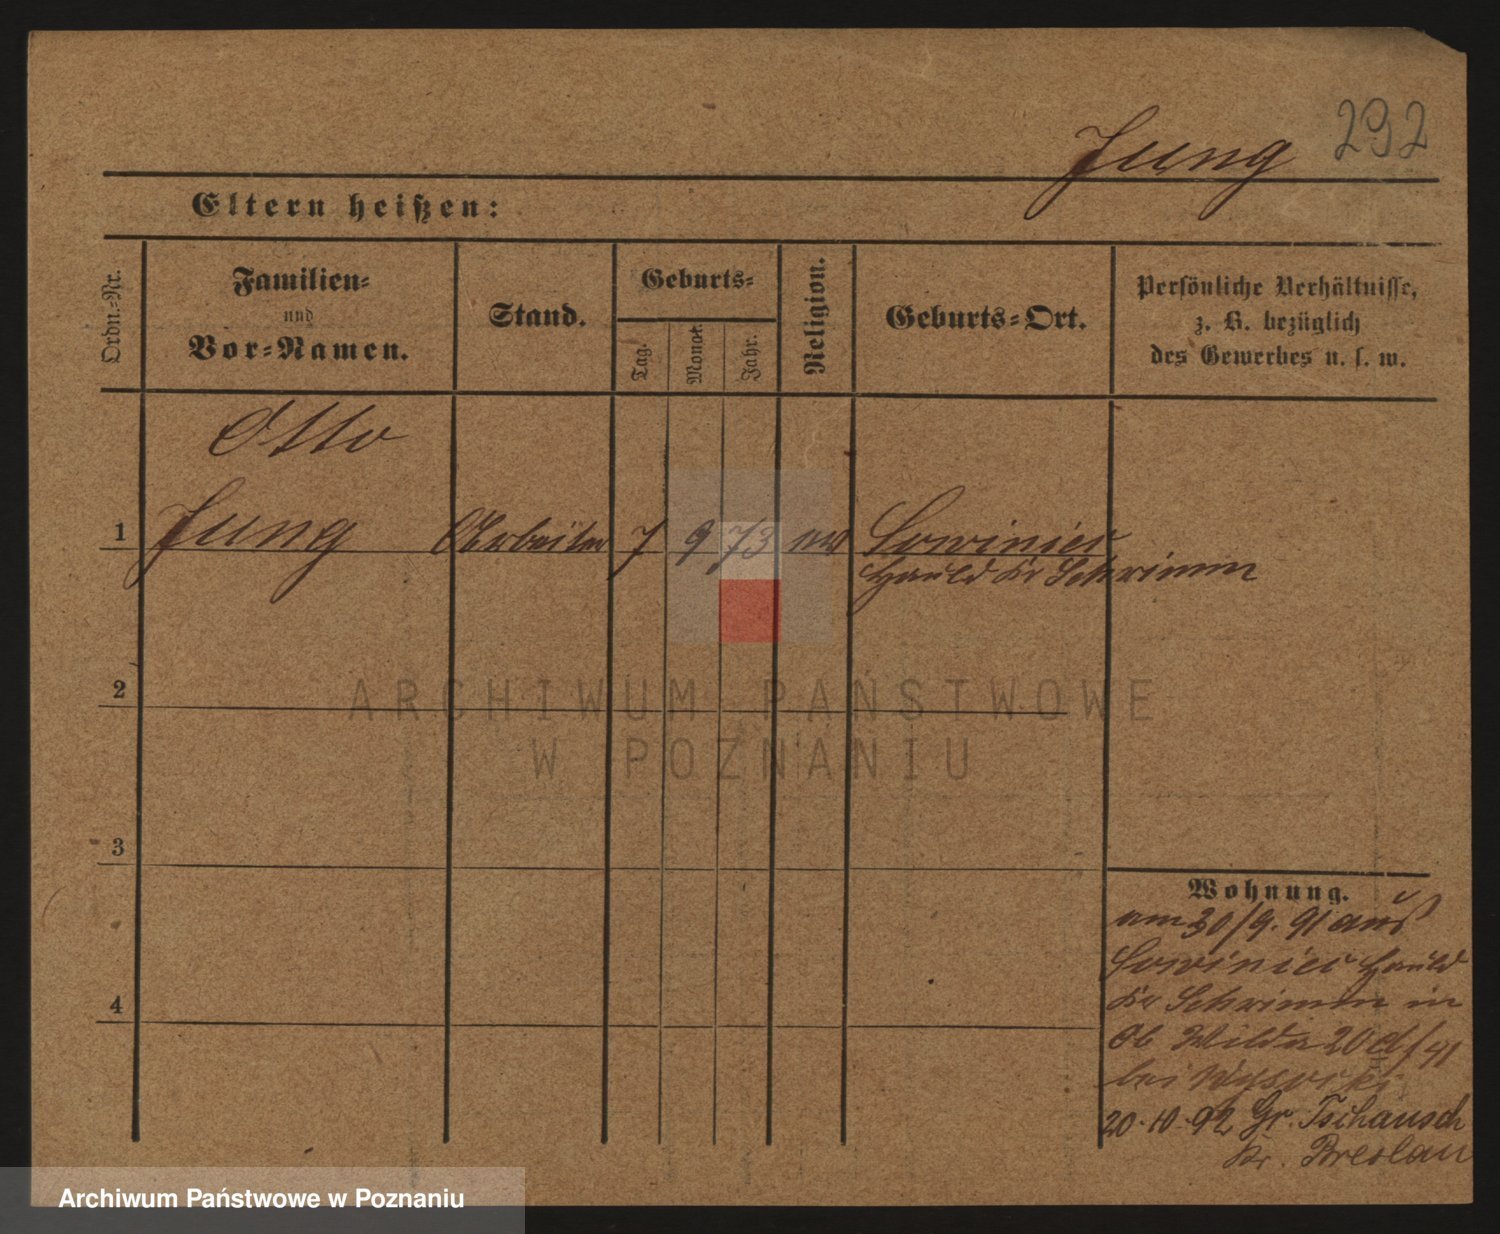 Jung 292
Eltern heißen:
Ordn.-Nr.
Familien-
und
Vor-Namen.
Stand.
Geburts-
Tag.
Monat.
Jahr.
Religion.
Geburts-Ort.
Persönliche Verhältnisse,
z. B. bezüglich
des Gewerbes u. s. w.
Otto
1 Jung Arbeiter 7 9 73 ev Sowiniec
Hauld Kr Schrimm
2
3
4
Wohnung.
am 30/9. 91 aus
Sowiniec Hauld
Kr Schrimm in
Ob Wilda 20 d/41
bei Wysocki
20.10.92 Gr. Tschausch
Kr. Breslau
ARCHIWUM PAŃSTWOWE
W POZNANIU
Archiwum Państwowe w Poznaniu